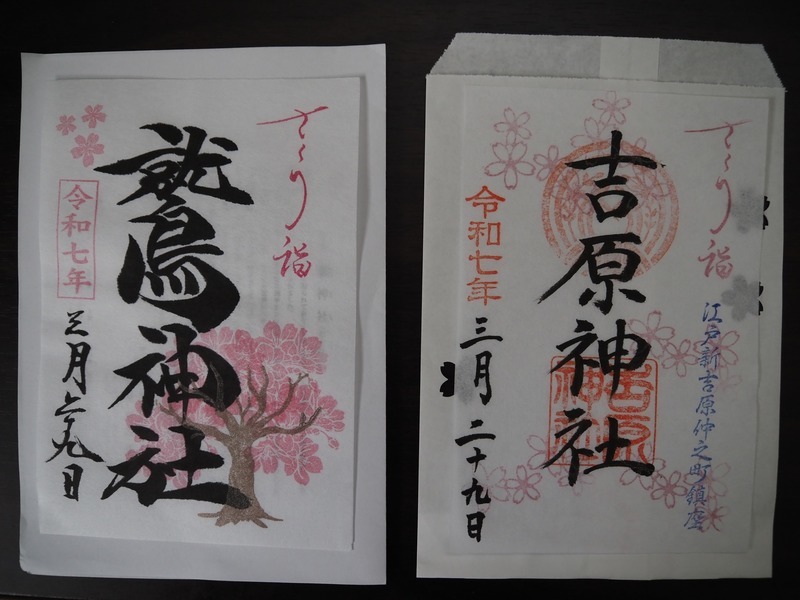 さくり詣
鷲鳥神社
令和七年
三月二十九日
さくり詣
江戸新吉原仲之町鎮座
吉原神社
令和七年
三月二十九日